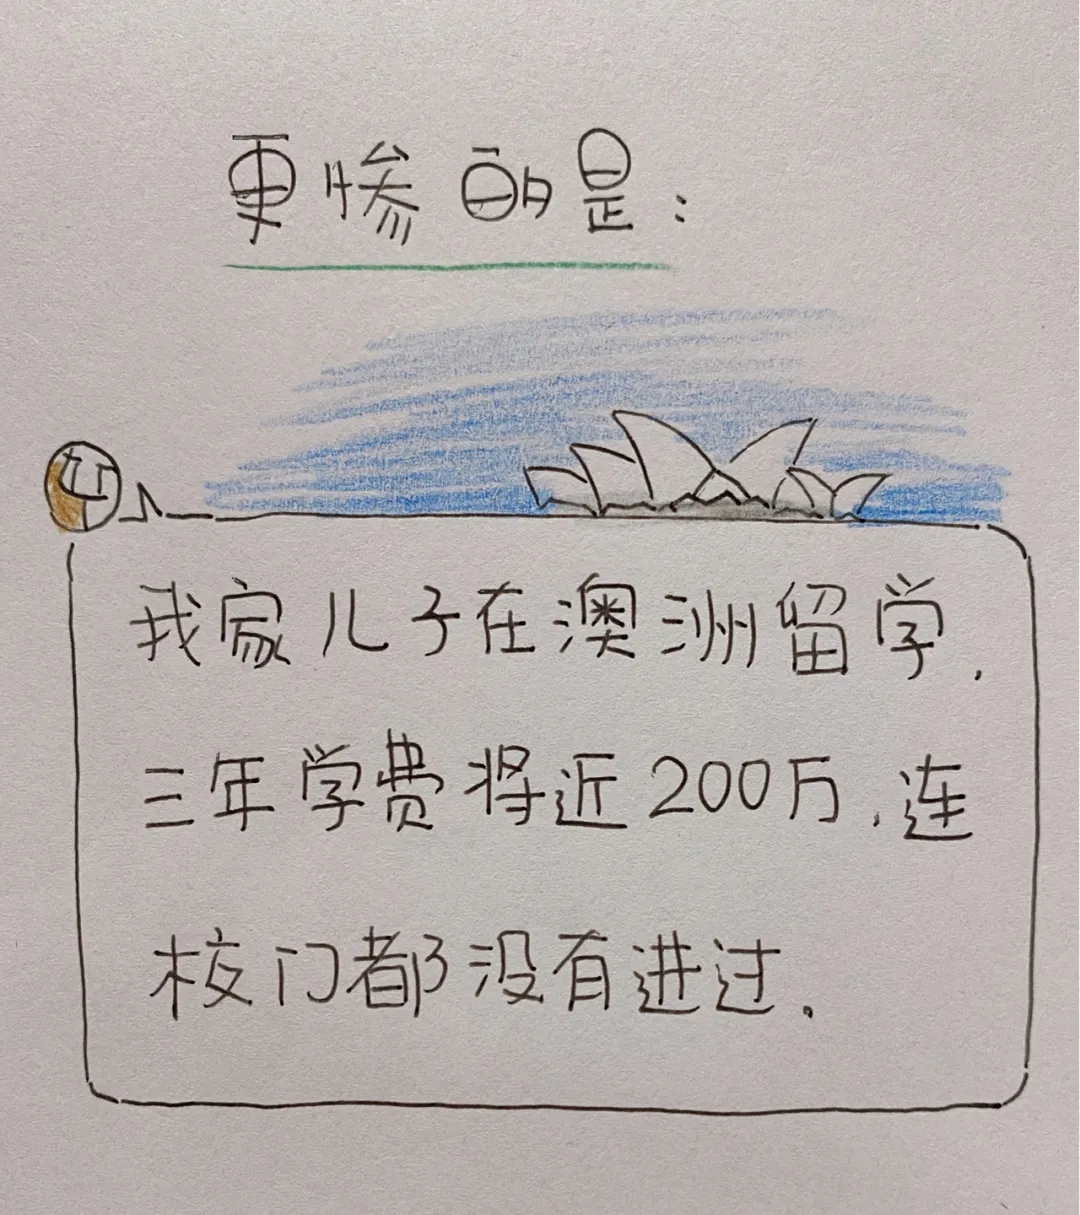 更惨的是:
我家儿子在澳洲留学,
三年学费将近200万,连
校门都没有进过.